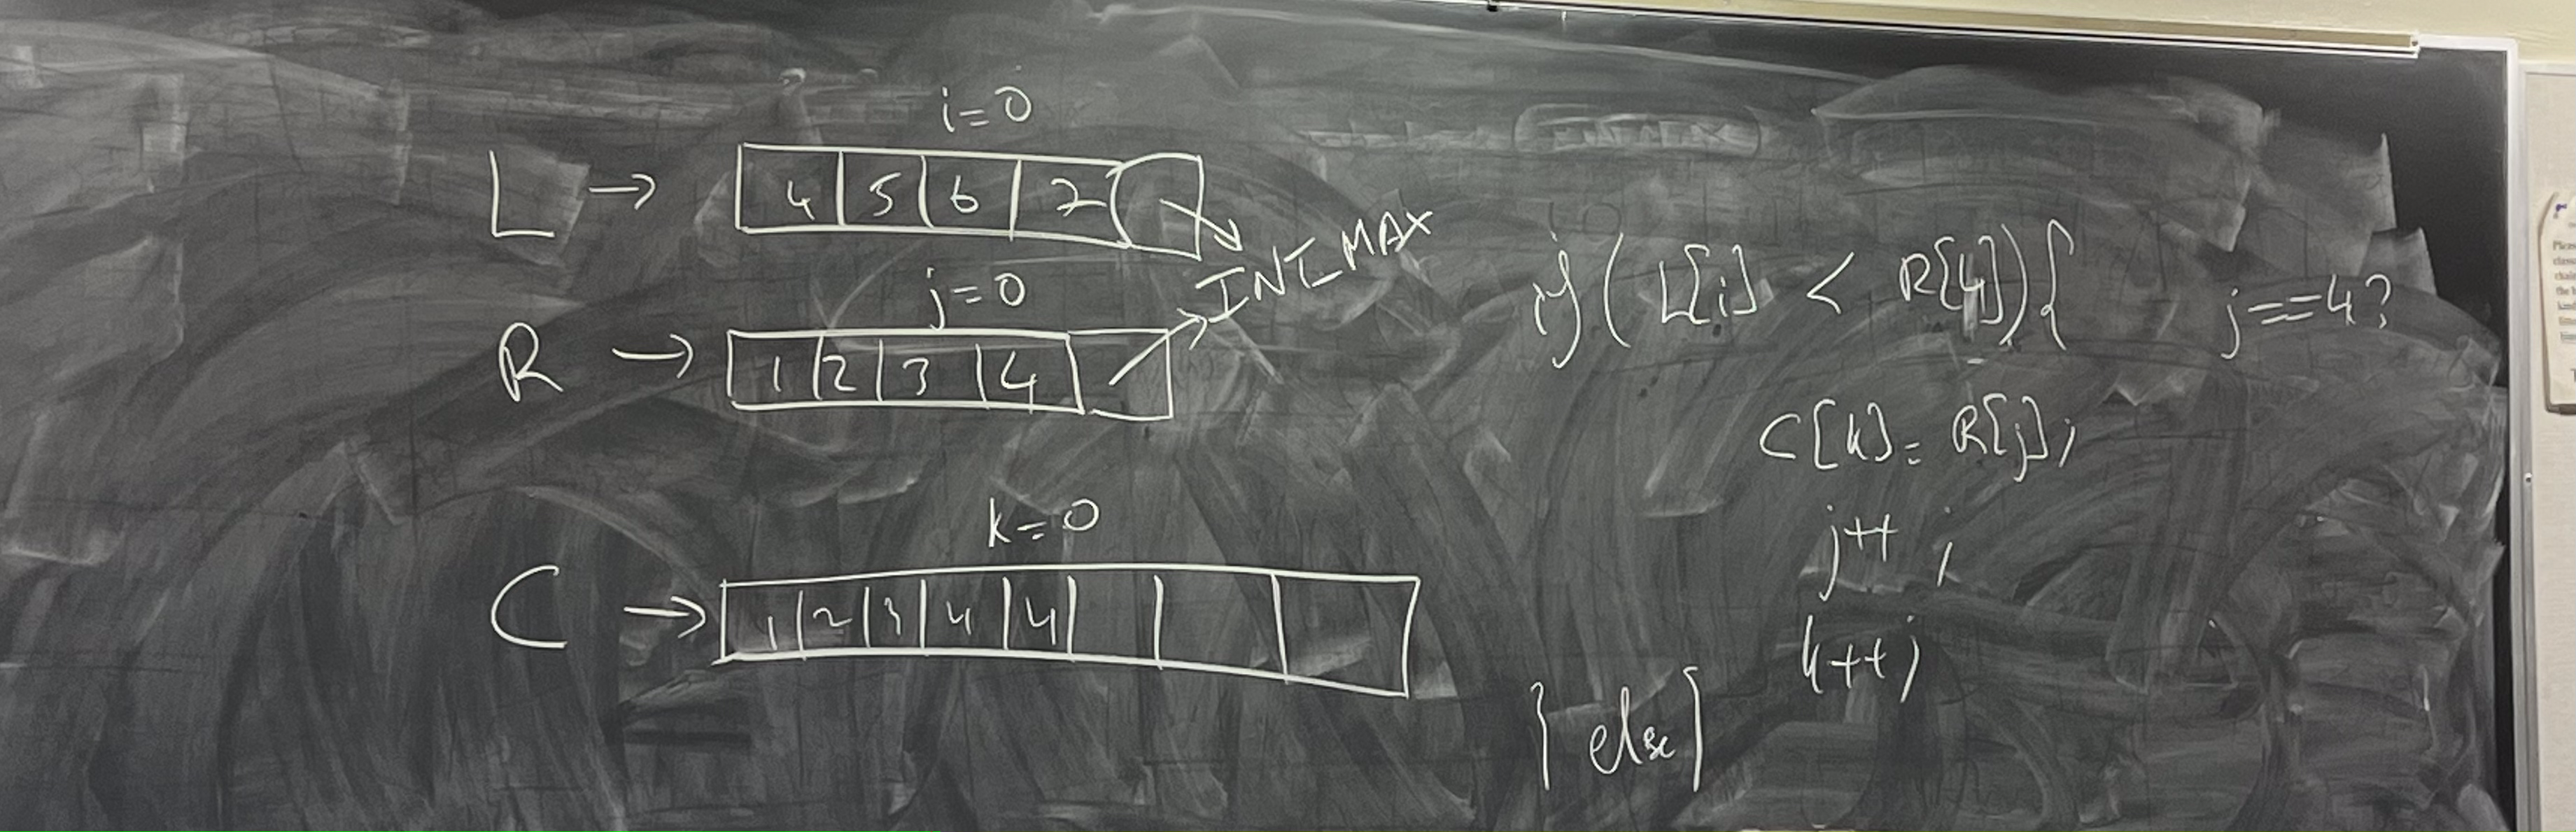 i=0
L → 4 5 6 7
INT_MAX
j=0
R → 1 2 3 4
k=0
C → 1 2 3 4 4
if ( L[i] < R[4] ) {
j==4?
C[k] = R[j];
j++ ;
k++ ;
} else {